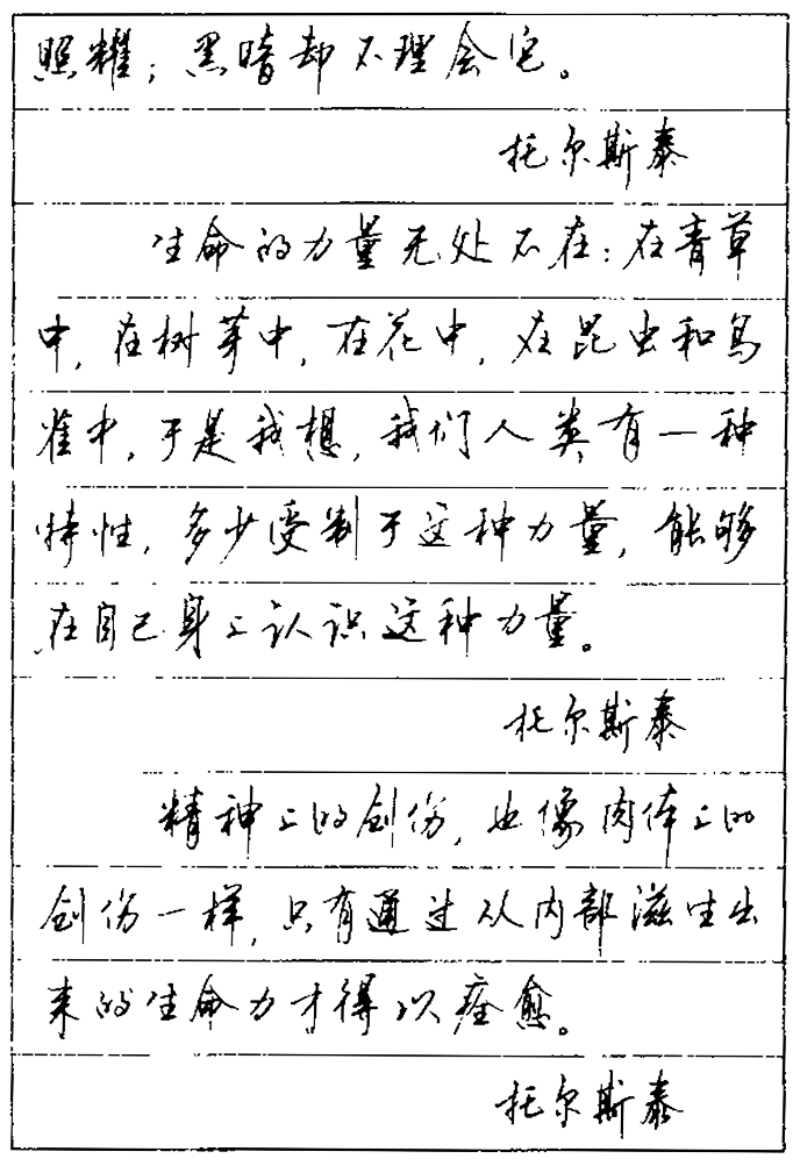 照耀；黑暗却不理会它。
托尔斯泰
生命的力量无处不在：在青草
中，在树芽中，在花中，在昆虫和鸟
雀中，于是我想，我们人类有一种
特性，多少受制于这种力量，能够
在自己身上认识这种力量。
托尔斯泰
精神上的创伤，也像肉体上的
创伤一样，只有通过从内部滋生出
来的生命力才得以痊愈。
托尔斯泰